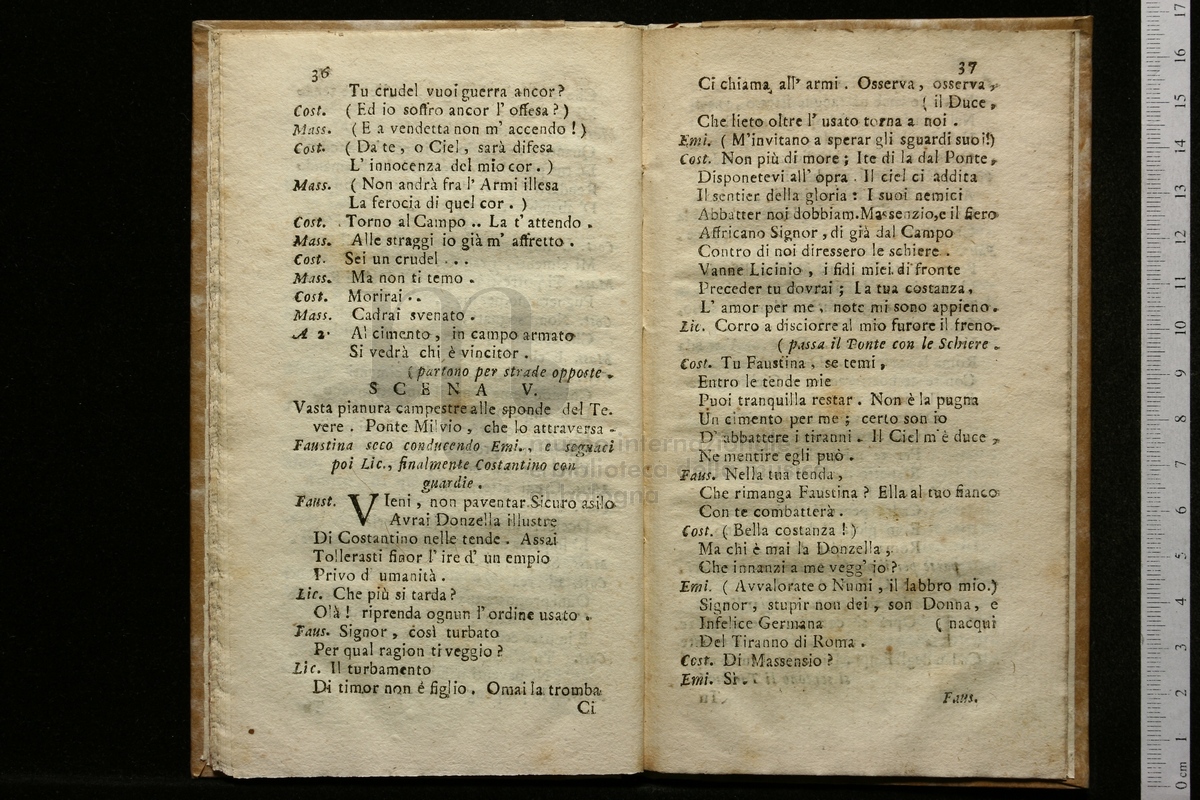 36
Tu crudel vuoi guerra ancor?
Cost. ( Ed io soffro ancor l' offesa ? )
Mass. ( E a vendetta non m' accendo ! )
Cost. ( Da te , o Ciel , sarà difesa
L' innocenza del mio cor . )
Mass. ( Non andrà fra l' Armi illesa
La ferocia di quel cor . )
Cost. Torno al Campo .. La t' attendo .
Mass. Alle straggi io già m' affretto .
Cost. Sei un crudel . . .
Mass. Ma non ti temo .
Cost. Morirai . .
Mass. Cadrai svenato .
A 2. Al cimento , in campo armato
Si vedrà chi è vincitor .
( partono per strade opposte .
SCENA V.
Vasta pianura campestre alle sponde del Te.
vere . Ponte Milvio , che lo attraversa -
Faustina seco conducendo Emi. , e seguaci
poi Lic., finalmente Costantino con
guardie .
Faust. VIeni , non paventar. Sicuro asilo
Avrai Donzella illustre
Di Costantino nelle tende . Assai
Tollerasti finor l' ire d' un empio
Privo d' umanità .
Lic. Che più si tarda ?
Olà ! riprenda ognun l' ordine usato .
Faus. Signor , così turbato
Per qual ragion ti veggio ?
Lic. Il turbamento
Di timor non è figlio . Omai la tromba
Ci
37
Ci chiama all' armi . Osserva , osserva ,
( il Duce ,
Che lieto oltre l' usato torna a noi .
Emi. ( M'invitano a sperar gli sguardi suoi!)
Cost. Non più di more ; Ite di la dal Ponte ,
Disponetevi all' opra . Il ciel ci addita
Il sentier della gloria : I suoi nemici
Abbatter noi dobbiam. Massenzio, e il fiero
Affricano Signor , di già dal Campo
Contro di noi diressero le schiere .
Vanne Licinio , i fidi miei di fronte
Preceder tu dovrai ; La tua costanza ,
L' amor per me , note mi sono appieno .
Lic. Corro a disciorre al mio furore il freno.
( passa il Ponte con le Schiere .
Cost. Tu Faustina , se temi ,
Entro le tende mie
Puoi tranquilla restar . Non è la pugna
Un cimento per me ; certo son io
D' abbattere i tiranni . Il Ciel m'è duce ,
Ne mentire egli può .
Faus. Nella tua tenda ,
Che rimanga Faustina ? Ella al tuo fianco
Con te combatterà .
Cost. ( Bella costanza ! )
Ma chi è mai la Donzella ,
Che innanzi a me vegg' io ?
Emi. ( Avvalorate o Numi , il labbro mio.)
Signor , stupir non dei , son Donna , e
Infelice Germana ( nacqui
Del Tiranno di Roma .
Cost. Di Massensio ?
Emi. Si . .
Faus.
museo internazionale
e biblioteca della musica
di Bologna
0 cm 1 2 3 4 5 6 7 8 9 10 11 12 13 14 15 16 17